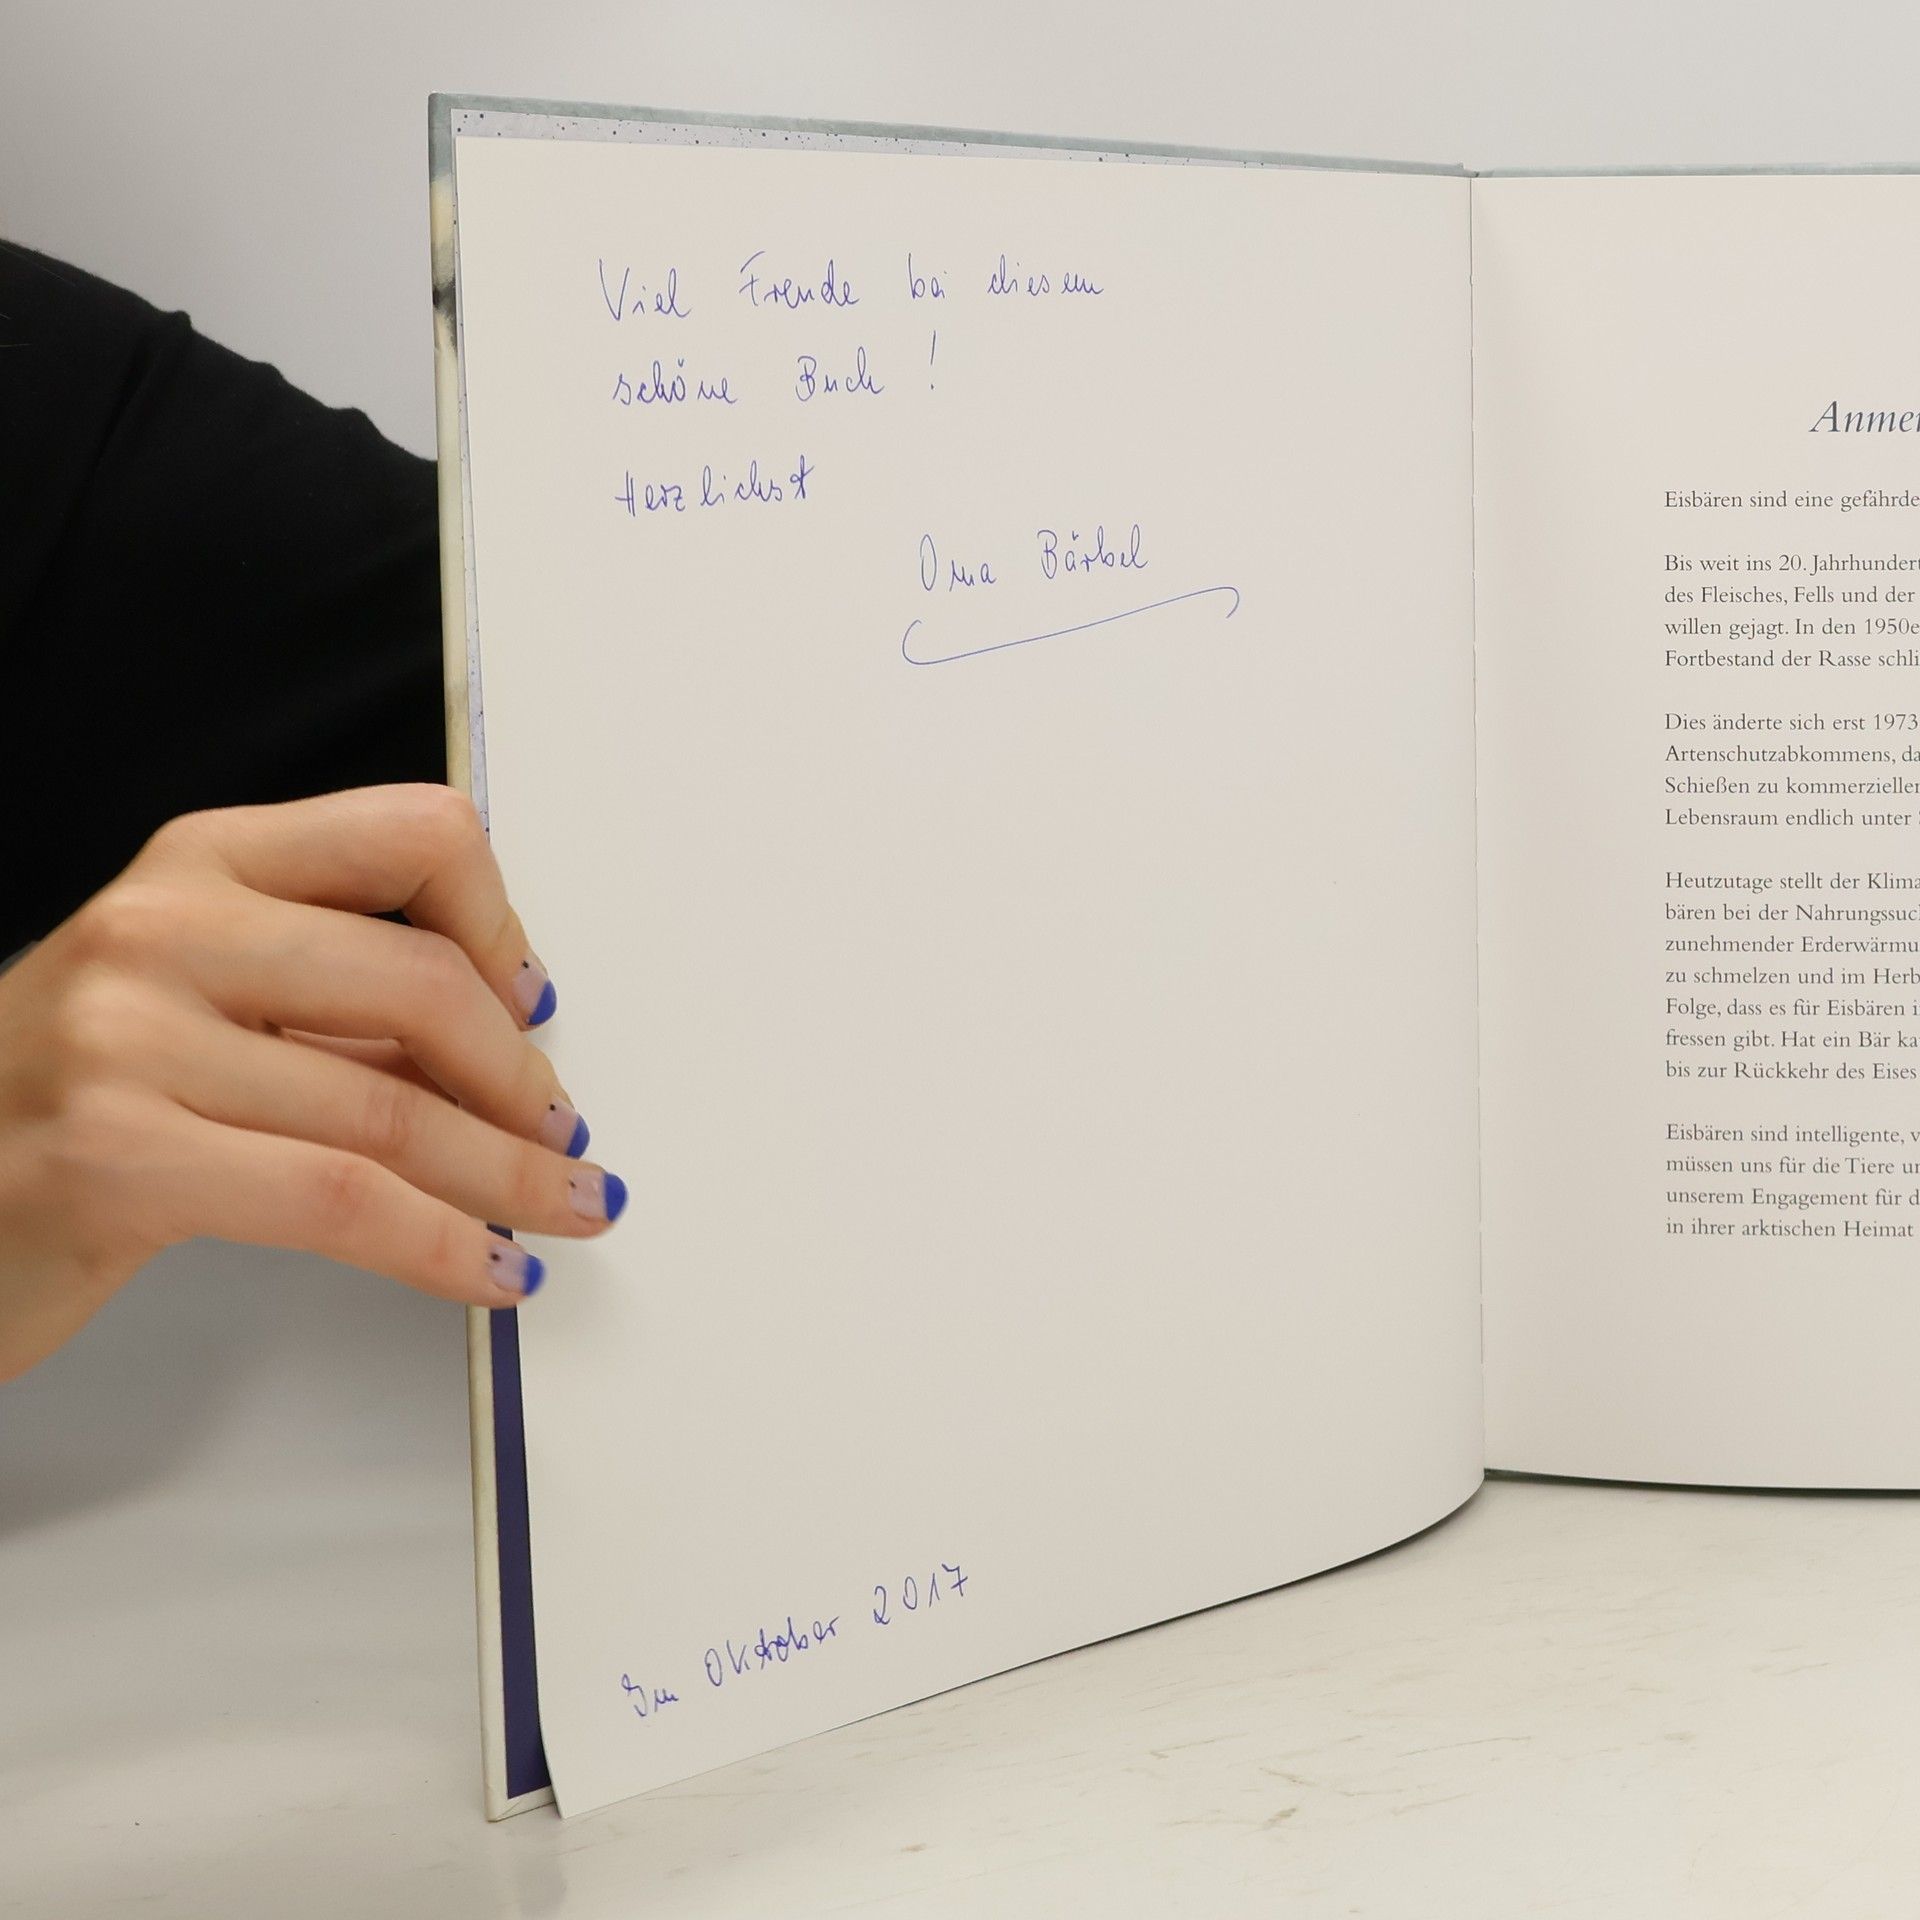 Viel Freude bei diesem
schöne Buch !
Herzlichst
Oma Bärbel
Im Oktober 2017
Eisbären sind eine
Bis weit ins 20. Jahrhundert
des Fleisches, Fells und der
willen gejagt. In den
Fortbestand der Rasse
Dies änderte sich erst 1973
Artenschutzabkommens,
Schießen zu
Lebensraum endlich unter
Heutzutage stellt der
bären bei der
zunehmender
zu schmelzen und im
Folge, dass es für Eisbären
fressen gibt. Hat ein Bär
bis zur Rückkehr des Eises
Eisbären sind intelligente,
müssen uns für die Tiere
unserem Engagement für
in ihrer arktischen Heimat